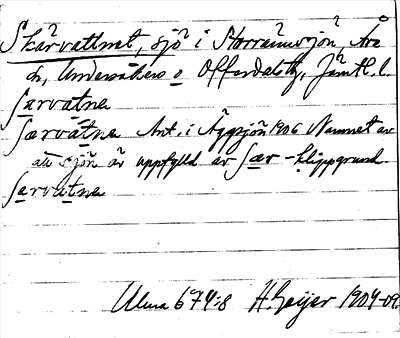 Skärvattnet, sjö i Storrämsjön, Åre
s, Undersåkers o Offerdals tg, Jämtl. l.
ʃærvatnə
ʃærvatnə Ant. i Äggsjön 1906 Namnet av
att sjön är uppfylld av ʃær - klippgrund.
ʃarvatnə
Ulma 674:8 H. Geijer 1904-09.